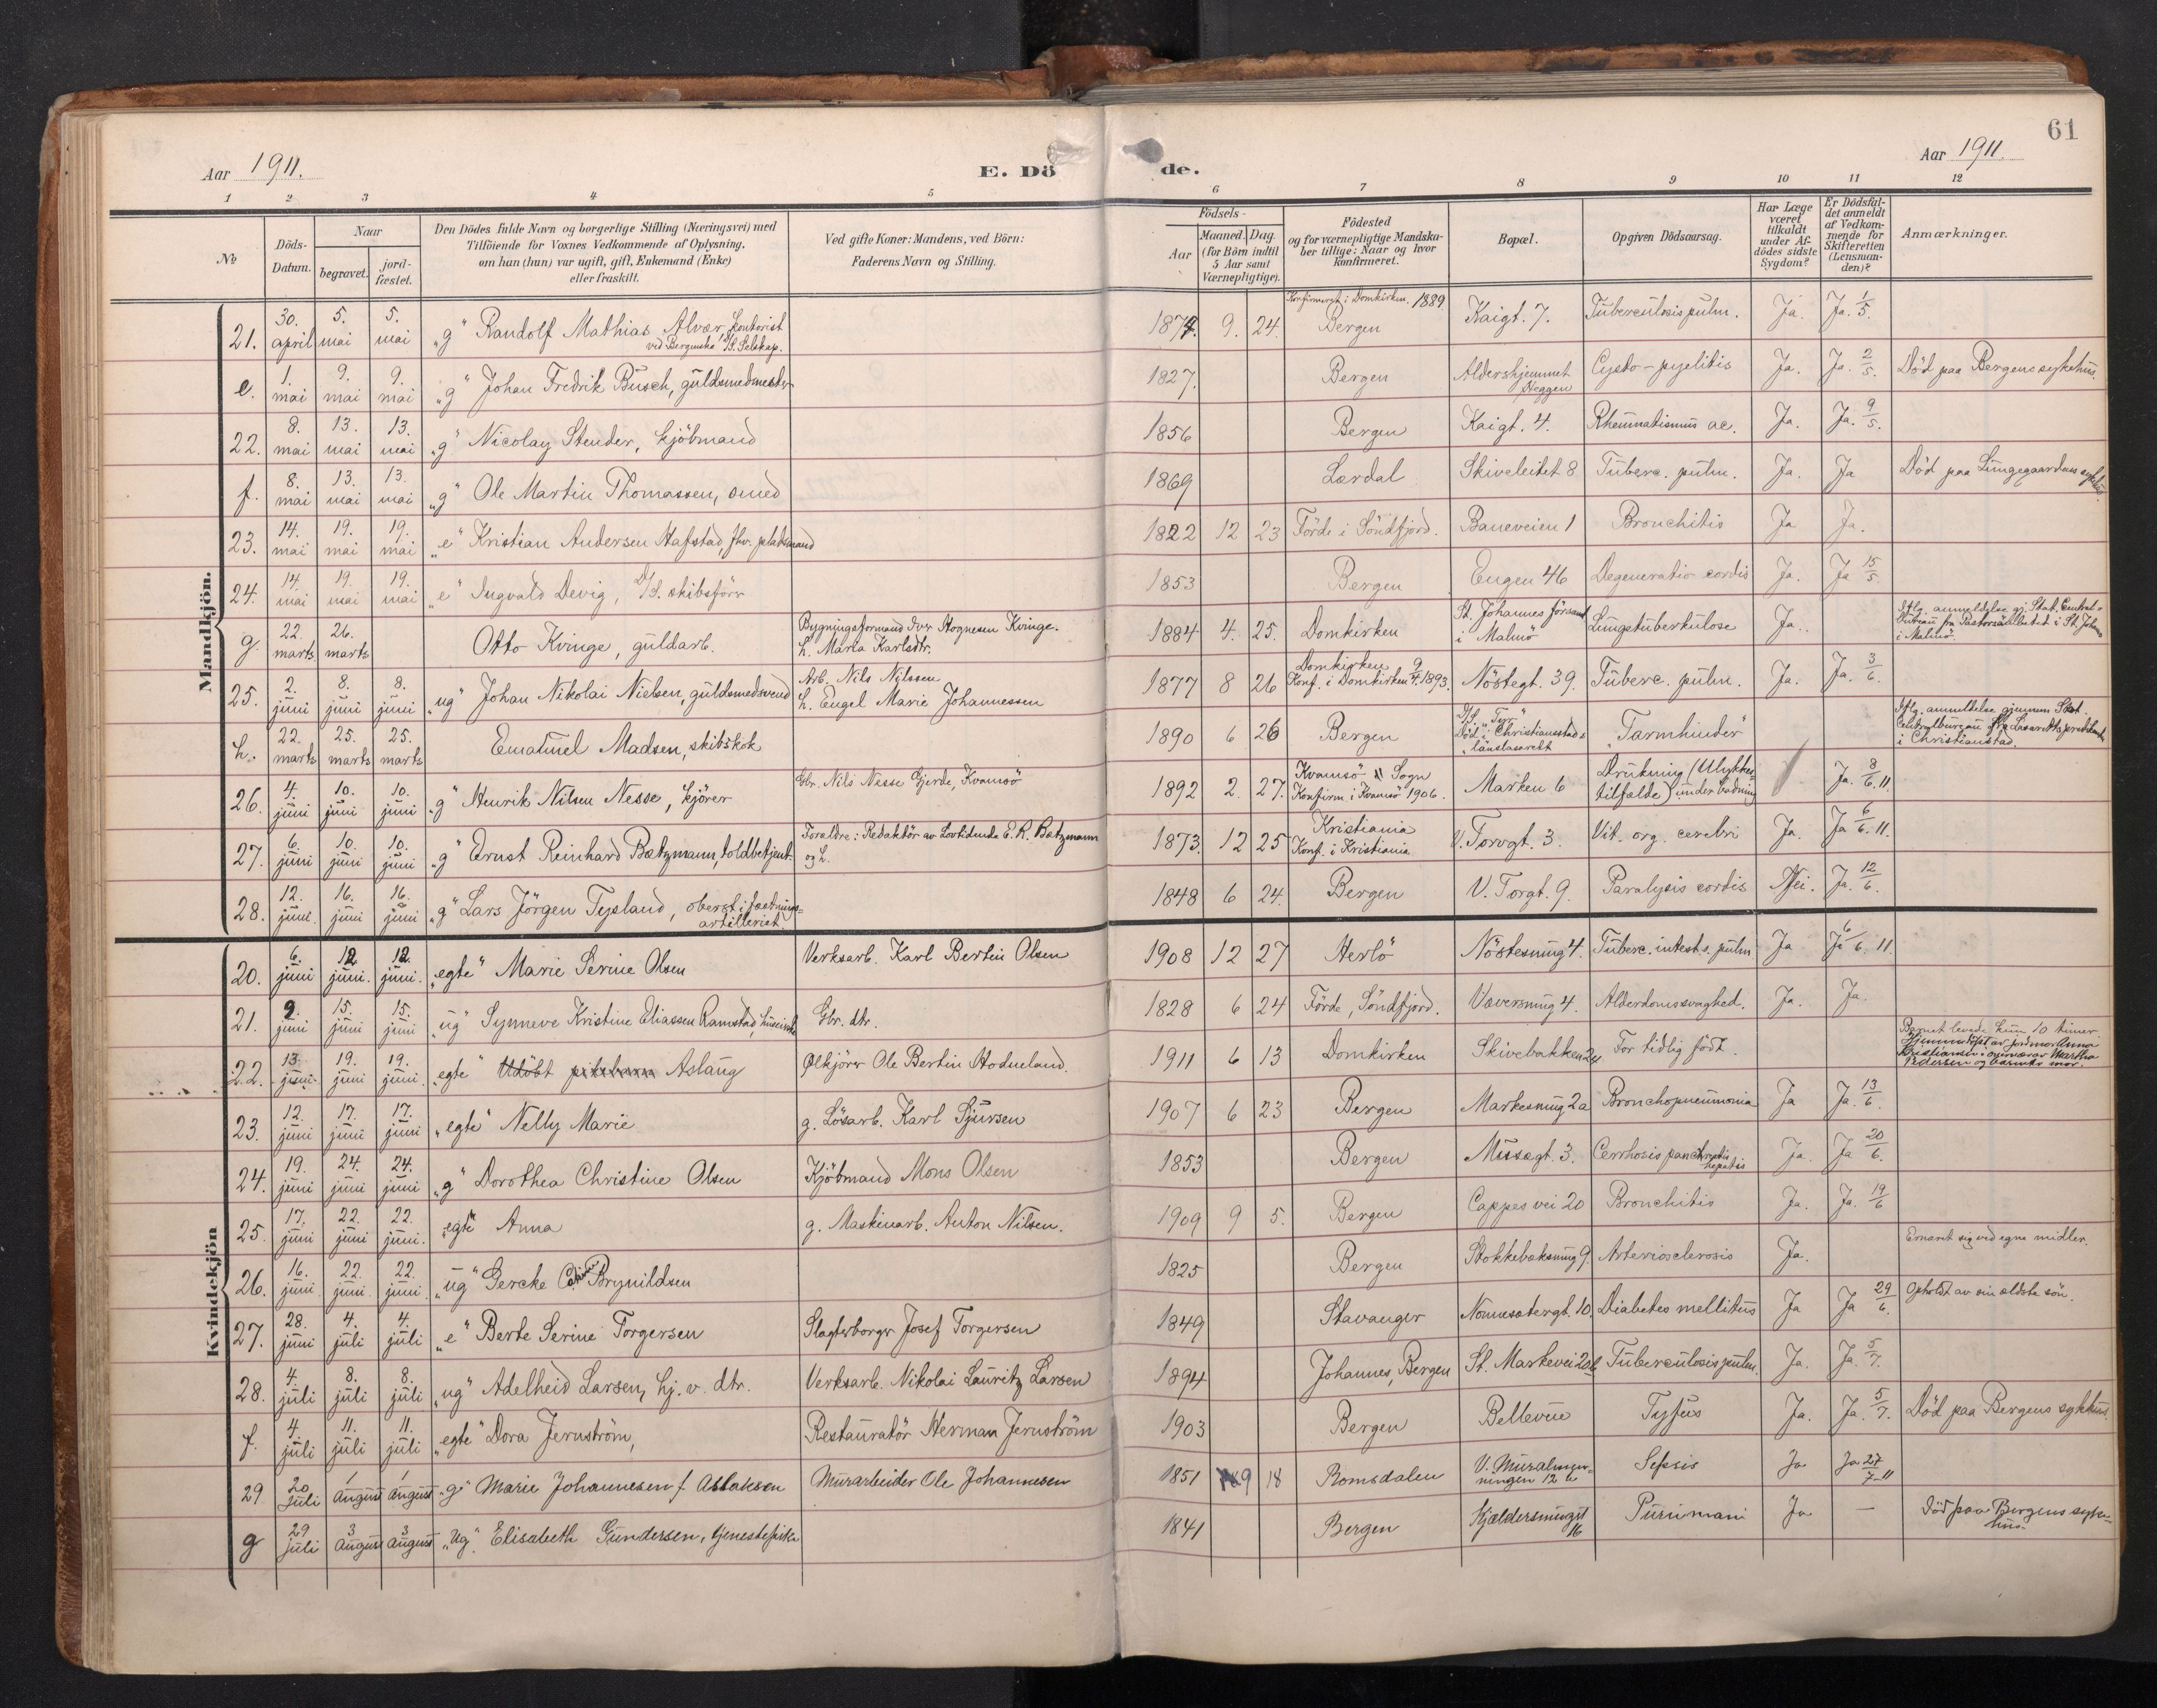 61
Aar 1911.
E. Döde.
Aar 1911.
1 2 3 4 5 6 7 8 9 10 11 12
No
Döds-Datum.
Naar
begravet.
jord-fæstet.
Den Dödes fulde Navn og borgerlige Stilling (Næringsvei) med
Tilföiende for Voxnes Vedkommende af Oplysning,
om han (hun) var ugift, gift, Enkemand (Enke)
eller fraskilt.
Ved gifte Koner: Mandens, ved Börn:
Faderens Navn og Stilling.
Födsels-
Aar
Maaned. Dag.
(for Börn indtil
5 Aar samt
Værnepligtige).
Födested
og for værnepligtige Mandska-
ber tillige: Naar og hvor
konfirmeret.
Bopæl.
Opgiven Dödsaarsag.
Har Læge
været
tilkaldt
under Af-
dödes sidste
Sygdom?
Er Dödsfal-
det anmeldt
af Vedkom-
mende for
Skifteretten
(Lensman-
den)?
Anmærkninger.
Mandkjön.
21. 30. april 5. mai 5. mai „g" Randolf Mathias Alvær, kontorist ved Bergenske D/S. Selskap. 1874. 9. 24. Konfirmeret i Domkirken. 1889 Bergen Kaigt. 7. Tuberculosis pulm. Ja. Ja. 1/5.
e. 1. mai 9. mai 9. mai „g" Johan Fredrik Busch, guldsmedmester 1827. Bergen Aldershjemmet Heggen Cysto-pyelitis Ja. Ja. 2/5. Död paa Bergens sykehus.
22. 8. mai 13. mai 13. mai „g" Nicolay Stender, kjöbmand 1856 Bergen Kaigt. 4. Rheumatismus ac. Ja. Ja. 9/5.
f. 8. mai 13. mai 13. mai „g" Ole Martin Thomassen, smed 1869 Lærdal Skiveleitet 8 Tuberc. pulm. Ja. Ja Död paa Lungegaardens sykehus
23. 14. mai 19. mai 19. mai „e" Kristian Andersen Hafstad, fhv. pladsmand 1822 12 23 Förde i Söndfjord. Baneveien 1 Bronchitis Ja Ja.
24. 14. mai 19. mai 19. mai „e" Ingvald Devig, D/S. skibsförer 1853 Bergen Engen 46 Degeneratio cordis Ja. Ja 15/5.
g. 22. marts 26. marts Otto Kvinge, guldarb. Bygningsformand Iver Mognesen Kvinge. h. Marta Karlsdtr. 1884 4. 25. Domkirken St. Johannes församl. i Malmö Lungetuberkulose Ja. Iflg. anmeldelse gj. Stat. Central-bureau fra Pastorsämbetet i St. Johns i Malmö.
25. 2. juni 8. juni 8. juni „ug" Johan Nikolai Nielsen, guldsmedsvend Arb. Nils Nilssen h. Engel Marie Johannessen 1877 8 26 Domkirken Konf. i Domkirken 9/4. 1893. Nöstegt. 39. Tuberc. pulm. Ja. Ja. 3/6.
h. 22. marts 25. marts 25. marts Emanuel Madsen, skibskok 1890 6 26 Bergen D/S. „Tyr" Död i Christiansstads länslasarett „Tarmhinder" Iflg. anmeldelse gjennem Stat. Centralbureau fra Lasaretts predikanten i Christianstad.
26. 4. juni 10. juni 10. juni „g" Henrik Nilsen Nesse, kjörer Gbr. Nils Nesse Gjerde, Kvamsö 1892 2. 27. Kvamsö i Sogn Konfirm. i Kvamsö 1906. Marken 6 Drukning (Ulykkes-tilfælde) under badning Ja. 8/6. 11.
27. 6. juni 10. juni 10. juni „g" Ernst Reinhard Bætzmann, toldbetjent. Foreldre: Redaktör av Lovtidende E. R. Bætzmann og h. 1873. 12 25 Kristiania Konf. i Kristiania V. Torvgt. 3. Vit. org. cerebri Ja. Ja 6/6. 11.
28. 12. juni. 16. juni 16. juni „g" Lars Jörgen Tysland, oberst i fæstnings-artilleriet. 1848 6 24. Bergen V. Torgt. 9. Paralysis cordis Nei. Ja. 12/6.
Kvindekjön
20. 6. juni 12. juni. 12. juni. „egte" Marie Serine Olsen Verksarb. Karl Bertin Olsen 1908 12 27 Herlö Nöstesmug 4. Tuberc. intest. s. pulm Ja Ja 6/6. 11.
21. 9. juni 15. juni 15. juni „ug" Synneve Kristine Eliassen Ramstad, huseierske Gbr. dtr. 1828 6 24 Förde, Söndfjord. Væversmug 4. Alderdomssvaghed. Ja. Ja.
22. 13. juni. 19. juni 19. juni. „egte" Udöbt pikebarn Aslaug Ølkjörer Ole Bertin Hodneland. 1911 6 13 Domkirken Skivebakken 24 For tidlig födt. Barnet levede kun 10 timer. Hjemmedöpt av jordmor Anna Kristiansen i nærvær av Martha Pedersen og barnets mor.
23. 12. juni 17. juni 17. juni „egte" Nelly Marie g. Lösarb. Karl Sjursen 1907 6 23 Bergen Markesmug 2a Bronchopneumonia Ja Ja. 13/6.
24. 19. juni 24. juni 24. juni „g" Dorothea Christine Olsen Kjöbmand Mons Olsen 1853 Bergen Missægt. 3. Cerrhosis hepatis Ja. Ja 20/6.
25. 17. juni 22. juni 22. juni. „egte" Anna g. Maskinarb. Anton Nilsen. 1909 9 5. Bergen Cappes vei 20 Bronchitis Ja. Ja. 19/6
26. 16. juni 22. juni 22. juni „ug" Gercke Brynildsen 1825 Bergen Stokkebaksmug 9. Arteriosclerosis Ja. Ernæret sig ved egne midler.
27. 28. juni 4. juli 4. juli „e" Berte Serine Torgersen Slagterborger Josef Torgersen 1849 Stavanger Nonnesætergt. 10. Diabetes mellitus Ja Ja 29/6. Opholdt av sin ældste sön.
28. 4. juli 8. juli 8. juli „ug" Adelheid Larsen, hj. v. dtr. Verksarb. Nikolai Lauritz Larsen 1894 Johannes, Bergen St. Markevei 20b Tuberculosis pulm. Ja. Ja. 5/7.
f. 4. juli 11. juli 11. juli „egte" Dora Jernström, Restauratör Herman Jernström 1903 Bergen Bellevue Tyfus Ja. Ja. 5/7. Död paa Bergens sykehus.
29 20 juli 1 august 1 august „g" Marie Johannesen f. Aslaksen Murarbeider Ole Johannesen 1851 9 18 Romsdalen V. Muralmen-ningen 12 Sepsis Ja Ja 27/7-11
g 29 juli 3 august 3 august „ug". Elisabeth Gundersen, tjenestepike 1841 Bergen Kjældersmuget 16 Ja — Död paa Bergens syke-hus.